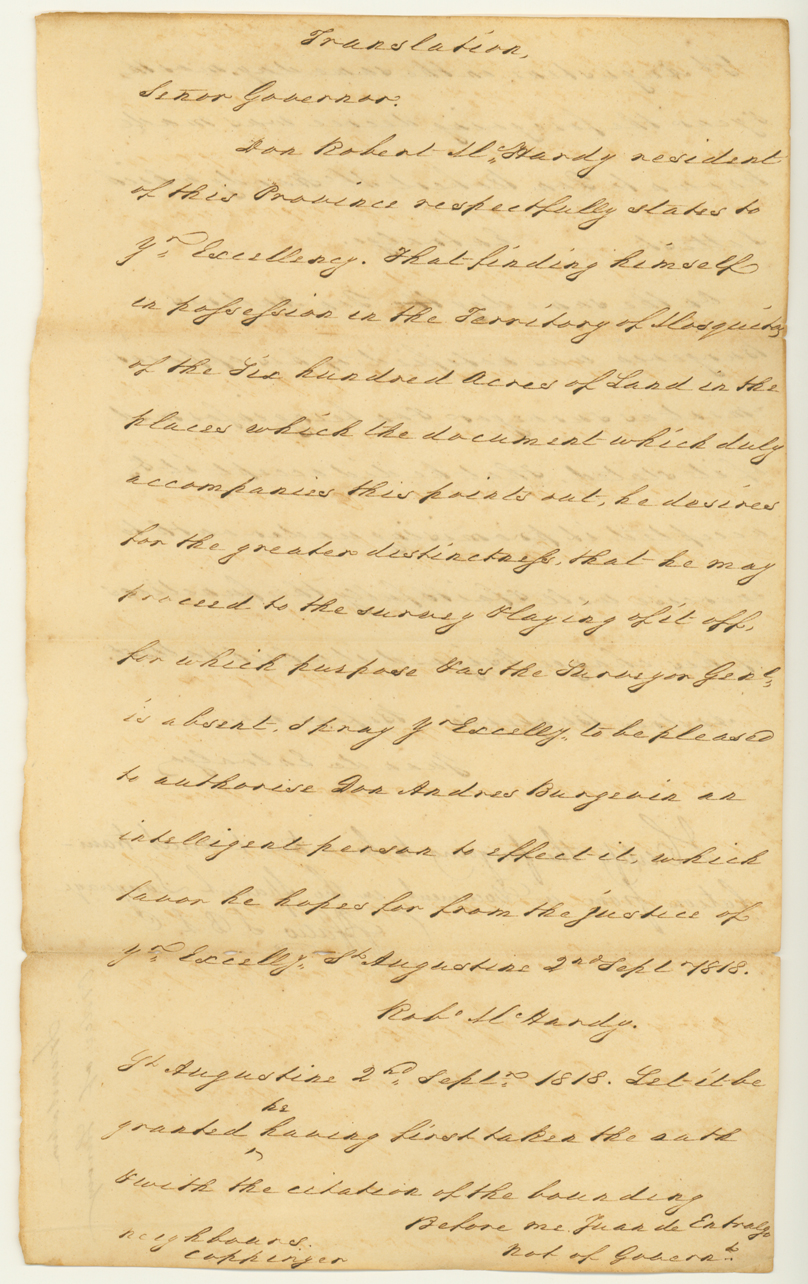 Translation,
Señor Governor.
Don Robert Mc Hardy resident
of this Province respectfully states to
Yr. Excellency. That finding himself
in possession in the Territory of Mosquitos
of the Six hundred Acres of Land in the
places which the document which duly
accompanies this points out, he desires
for the greater distinctness, that he may
proceed to the survey & laying of it off,
for which purpose & as the Surveyor Genl.
is absent. I pray Yr Excelly. to be pleased
to authorise Don Andres Burgevin an
intelligent person to effect it, which
favor he hopes for from the justice of
Yr. Excelly. St. Augustine 2nd Septr 1818.
Robt. Mc Hardy.
St Augustine 2nd. Septr. 1818. Let it be
granted he having first taken the oath
& with the citation of the bounding
neighbours.
Coppinger
Before me Juan de Entralgo
Not of Governt.